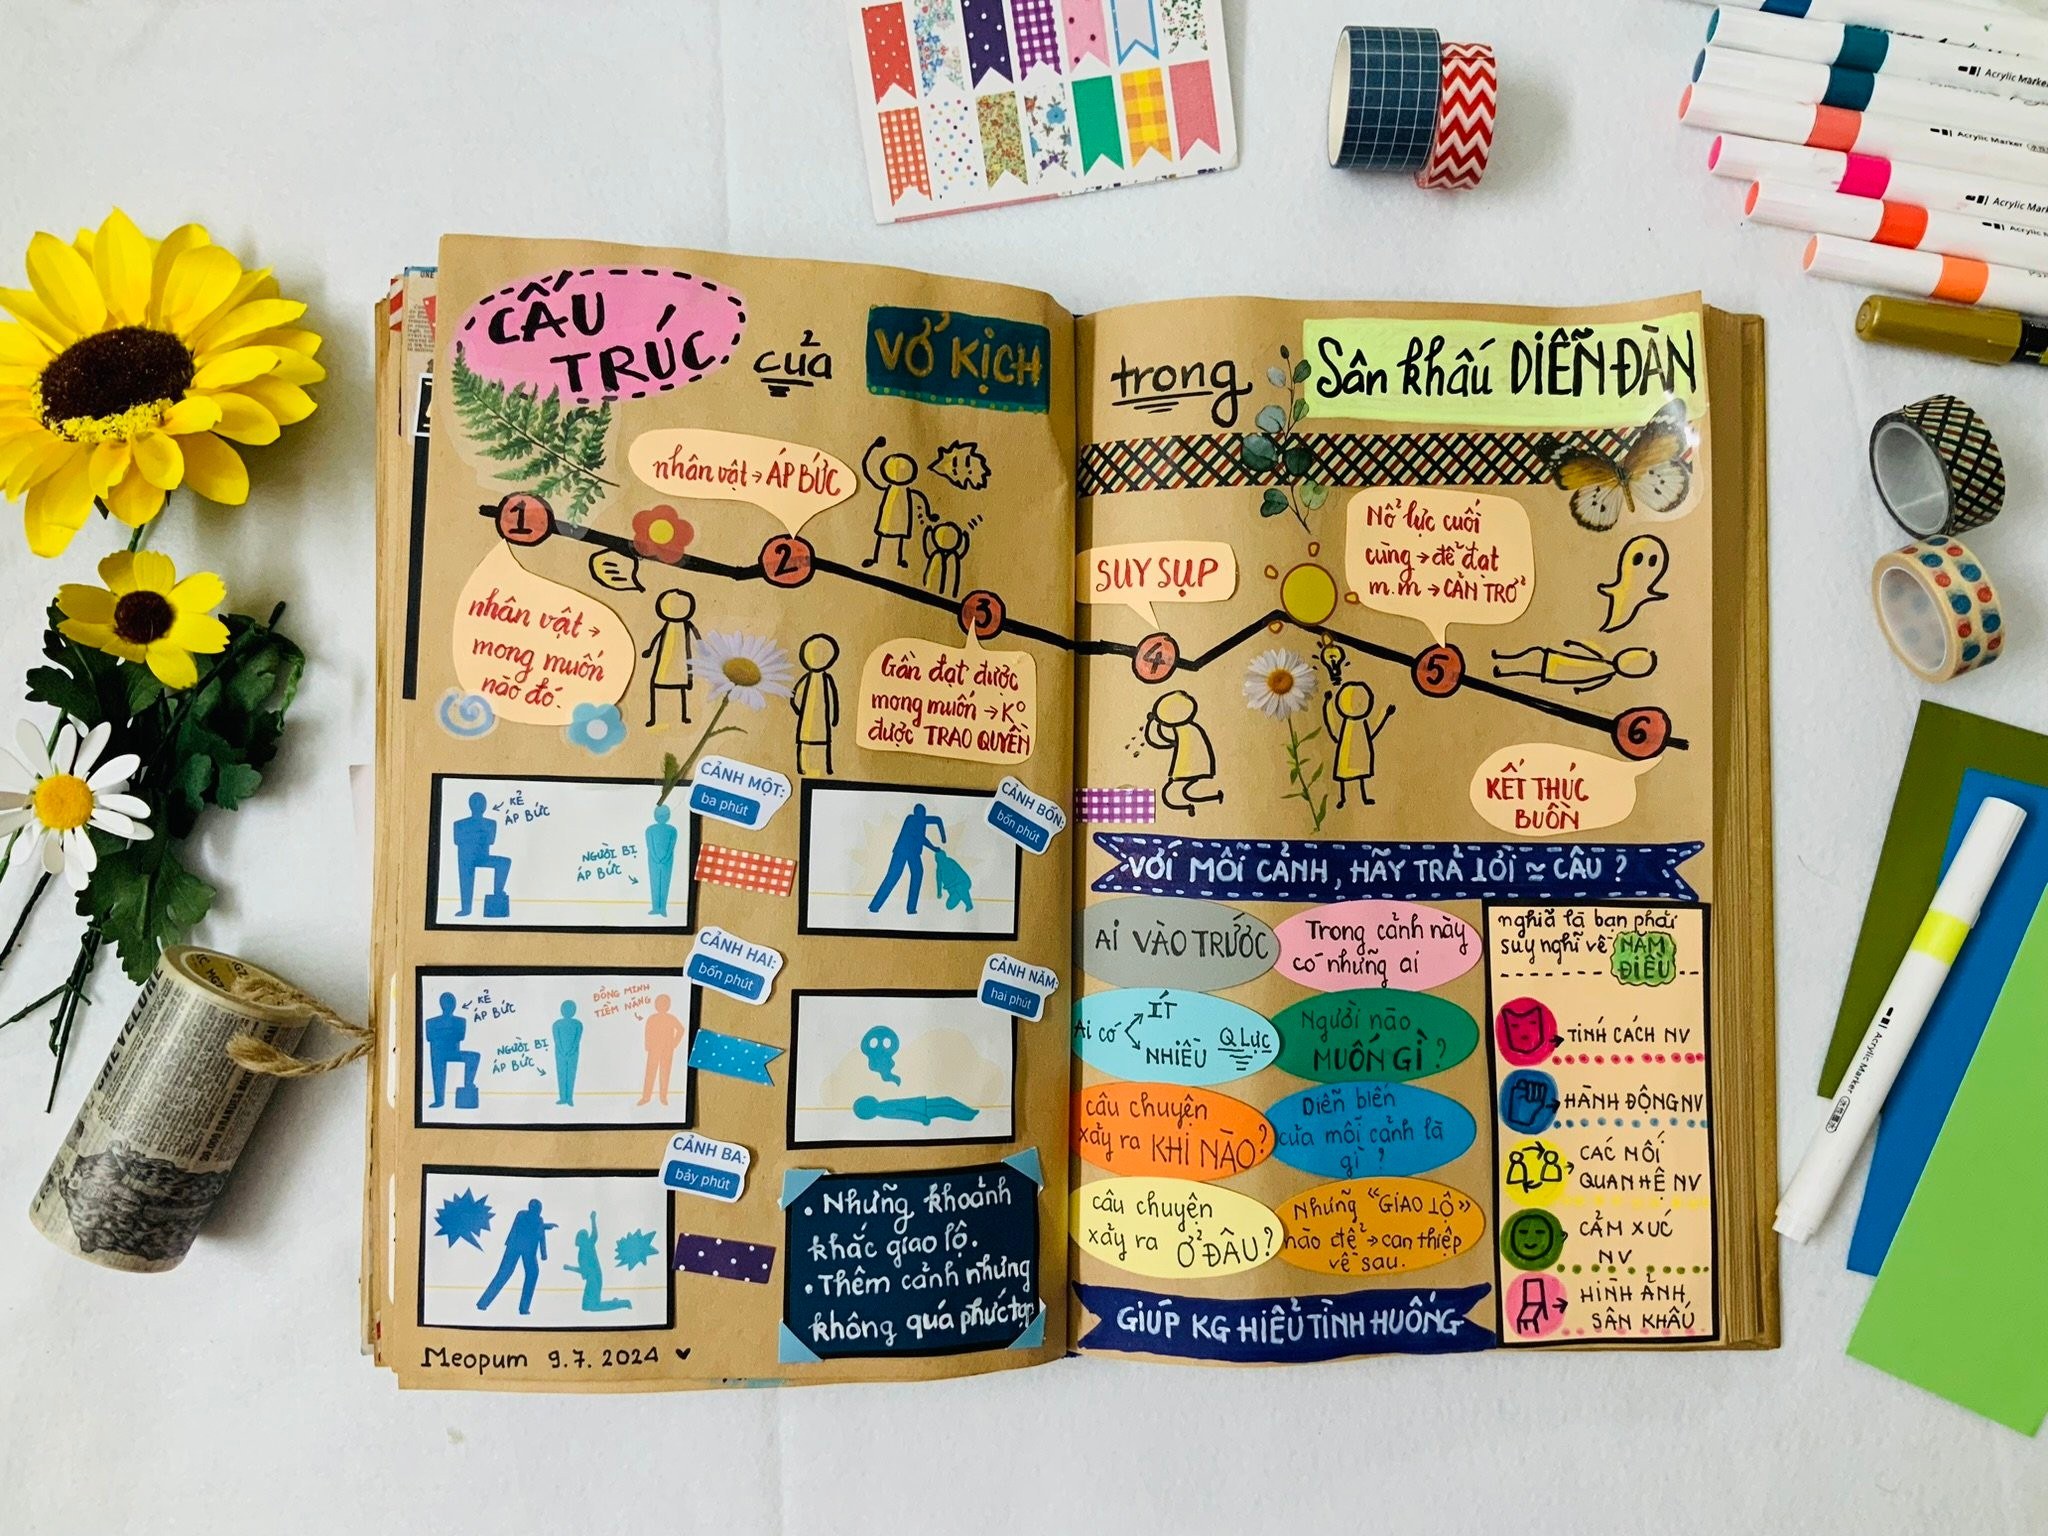 CẤU
TRÚC
của
VỞ KỊCH
trong
Sân khấu DIỄN ĐÀN
1
nhân vật →
mong muốn
nào đó.
2
nhân vật → ÁP BỨC
!!
3
Gần đạt được
mong muốn → K°
được TRAO QUYỀN
4
SUY SỤP
5
Nỗ lực cuối
cùng → để đạt
m.m → CẢN TRỞ
6
KẾT THÚC
BUỒN
CẢNH MỘT:
ba phút
KẺ
ÁP BỨC
NGƯỜI BỊ
ÁP BỨC
CẢNH HAI:
bốn phút
KẺ
ÁP BỨC
NGƯỜI BỊ
ÁP BỨC
ĐỒNG MINH
TIỀM NĂNG
CẢNH BA:
bảy phút
CẢNH BỐN:
bốn phút
CẢNH NĂM:
hai phút
• Những khoảnh
khắc giao lộ.
• Thêm cảnh nhưng
không quá phức tạp
Meopum 9.7.2024
VỚI MỖI CẢNH, HÃY TRẢ LỜI ≈ CÂU ?
AI VÀO TRƯỚC
Trong cảnh này
có những ai
Ai có
ÍT
NHIỀU
Q LỰC
Người nào
MUỐN GÌ ?
câu chuyện
xảy ra KHI NÀO?
Diễn biến
của mỗi cảnh là
gì ?
câu chuyện
xảy ra Ở ĐÂU?
Những "GIAO LỘ"
nào để → can thiệp
về sau.
GIÚP KG HIỂU TÌNH HUỐNG
nghĩa là bạn phải
suy nghĩ về NĂM
ĐIỀU
→ TÍNH CÁCH NV
→ HÀNH ĐỘNG NV
→ CÁC MỐI
QUAN HỆ NV
→ CẢM XÚC
NV
→ HÌNH ẢNH,
SÂN KHẤU
Acrylic Marker
Acrylic Marker
Acrylic Mark
Acrylic
Acrylic Marker